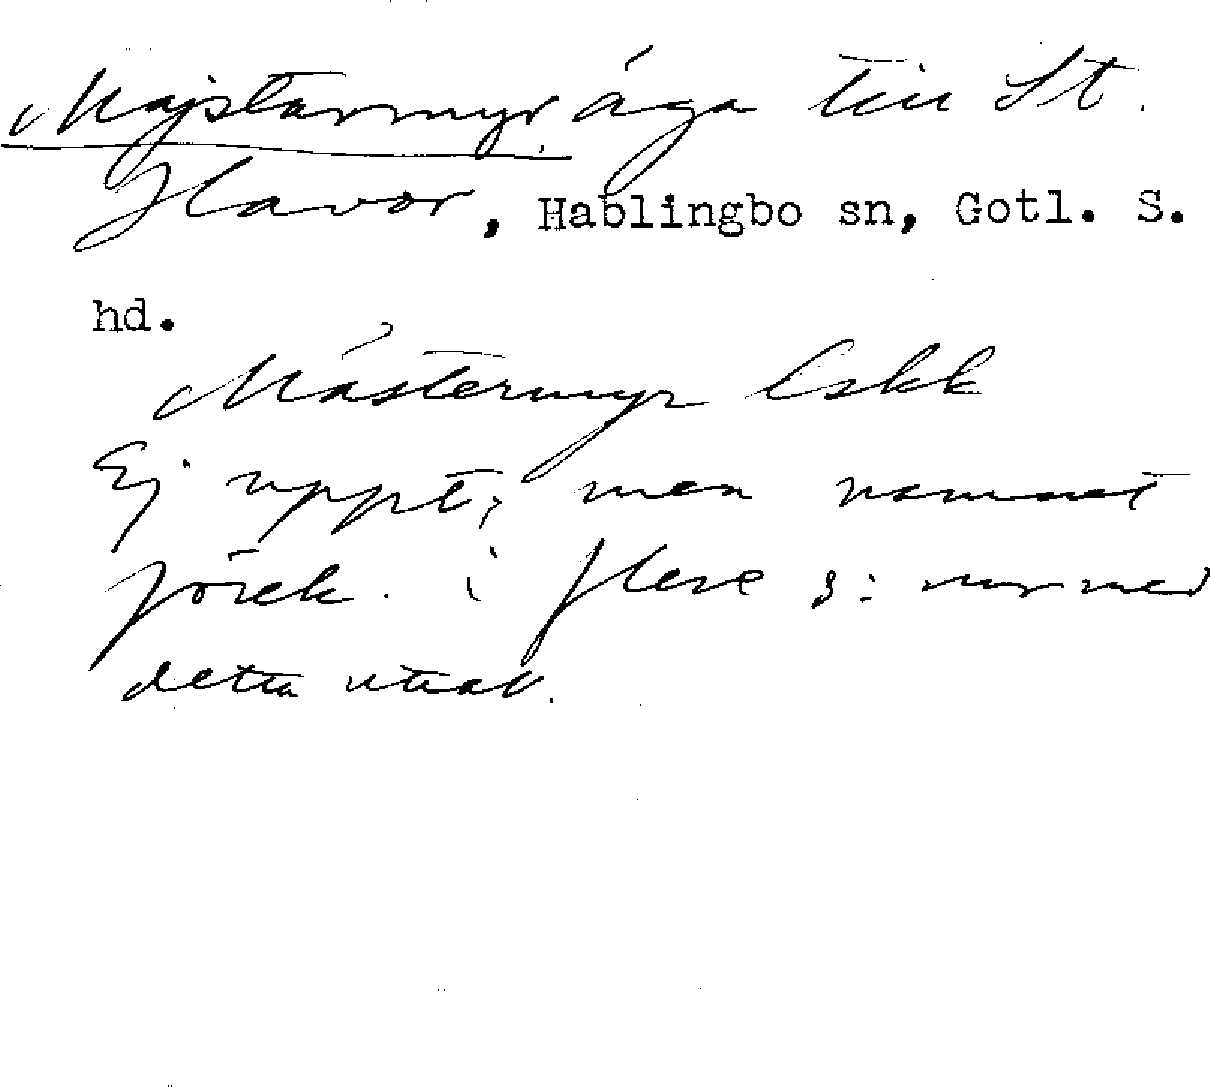 Majstarmyr äga till St.
Havor, Hablingbo sn, Gotl. S.
hd.
Mästermyr Eskk
Ej uppt, men
förek. i flere s:nr med
detta uttal.